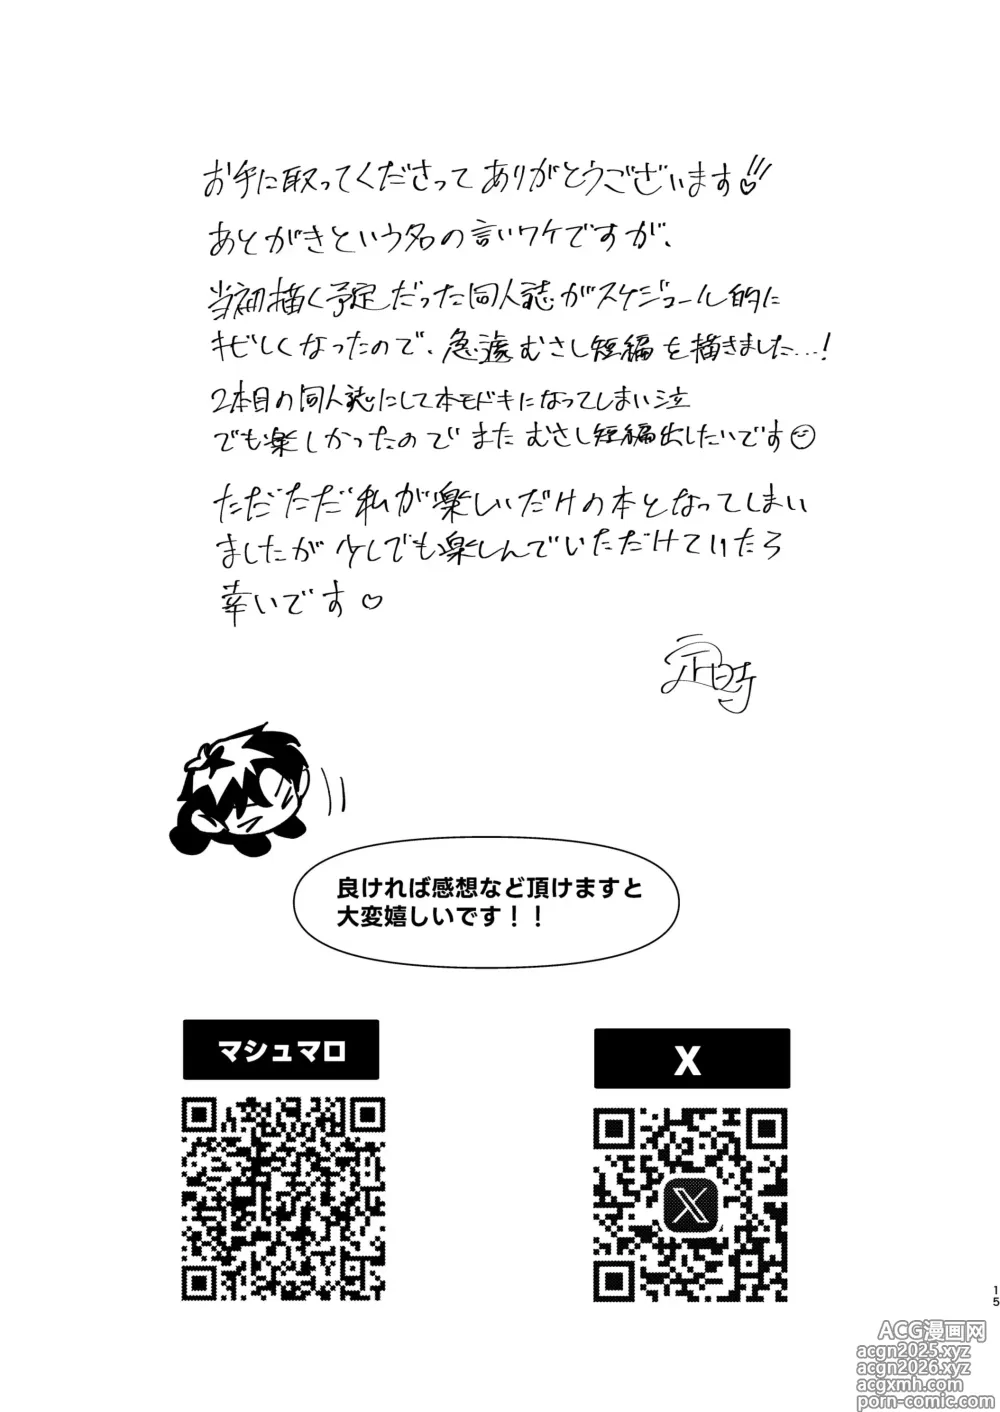 お手に取ってくださってありがとうございます♡!!!
あとがきという名の言いワケですが、
当初描く予定だった同人誌がスケジュール的に
キビしくなったので、急遽むさし短編を描きました…!
2本目の同人誌にして本モドキになってしまい泣
でも楽しかったのでまたむさし短編出したいです
ただただ私が楽しいだけの本となってしまい
ましたが少しでも楽しんでいただけていたら
幸いです♡
良ければ感想など頂けますと
大変嬉しいです！！
マシュマロ
X
15
ACG漫画网
acgn2025.xyz
acgn2026.xyz
acgxmh.com
porn-comic.com